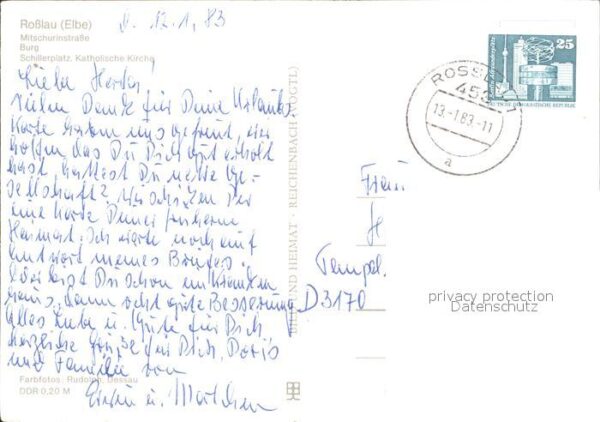 Roßlau (Elbe)
Mitschurinstraße
Burg
Schillerplatz, Katholische Kirche
d. 12.1.83
Liebe Herta!
Vielen Dank für Deine Urlaubs-
Karte haben uns gefreut, wir
hoffen das Du Dich gut erholt
hast, hattest Du nette Ge-
sellschaft? Wir schicken Dir
eine Karte Deiner früheren
Heimat. Ich warte noch auf
Antwort meines Briefes.
Oder bist Du schon im Kranken
haus, dann recht gute Besserung
Alles Liebe u. Gute für Dich
herzliche Grüße für Dich, Doris
und Familie von
u.
Farbfotos: Rudolph, Dessau
DDR 0,20 M
BILD UND HEIMAT · REICHENBACH (VOGTL)
25
DEUTSCHE DEMOKRATISCHE REPUBLIK
ROSSLAU 1
453
13.-1.83.-11
a
Frau
D 3170
privacy protection
Datenschutz